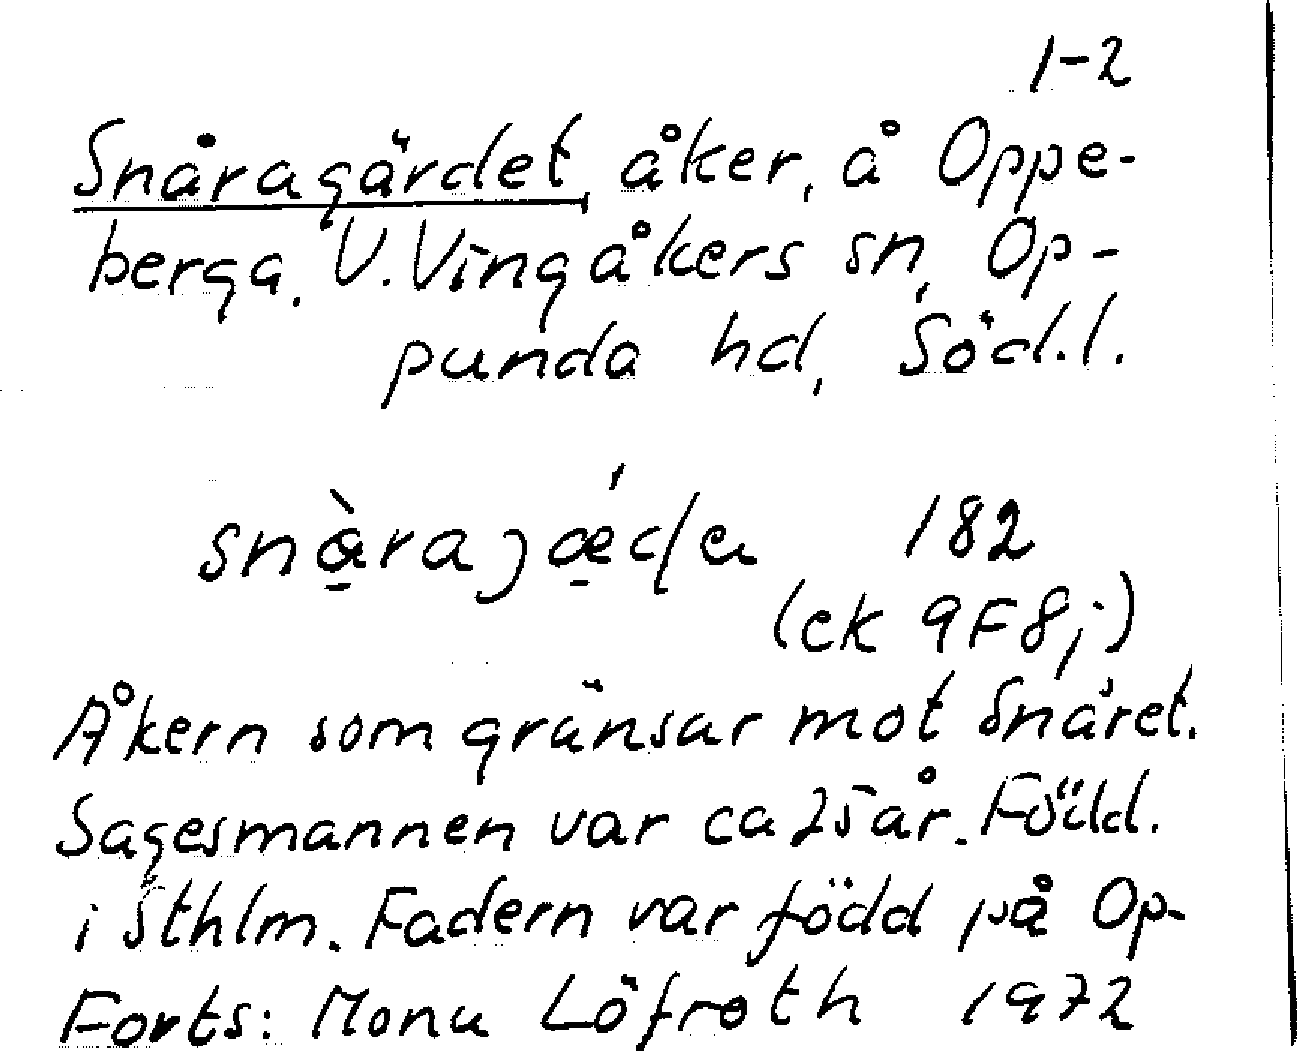 1-2
Snåragärdet, åker, å Oppe-
berga. V. Vingåkers sn, Op-
punda hd, Söd.l.
182
(ek 9F8j)
Åkern som gränsar mot Snåret.
Sagesmannen var ca 25 år. Född.
i Sthlm. Fadern var född på Op-
Forts: Mona Löfroth 1972